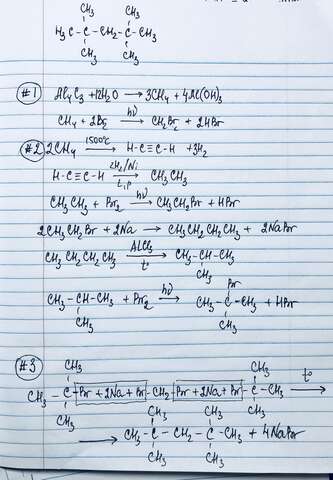 CH₃ CH₃
H₃C-C-CH₂-C-CH₃
CH₃ CH₃
#1 Al₄C₃ + 12H₂O → 3CH₄ + 4Al(OH)₃
CH₄ + 2Br₂ hν → CH₂Br₂ + 2HBr
#2 2CH₄ 1500°C → H-C≡C-H + 3H₂
H-C≡C-H 2H₂/Ni → t, p CH₃CH₃
CH₃CH₃ + Br₂ hν → CH₃CH₂Br + HBr
2CH₃CH₂Br + 2Na → CH₃CH₂CH₂CH₃ + 2NaBr
CH₃CH₂CH₂CH₃ AlCl₃ → t° CH₃-CH-CH₃
CH₃
Br
CH₃-CH-CH₃ + Br₂ hν → CH₃-C-CH₃ + HBr
CH₃ CH₃
#3 CH₃ CH₃
CH₃-C-Br + 2Na + Br-CH₂-Br + 2Na + Br-C-CH₃ t° →
CH₃ CH₃
CH₃ CH₃
→ CH₃-C-CH₂-C-CH₃ + 4NaBr
CH₃ CH₃